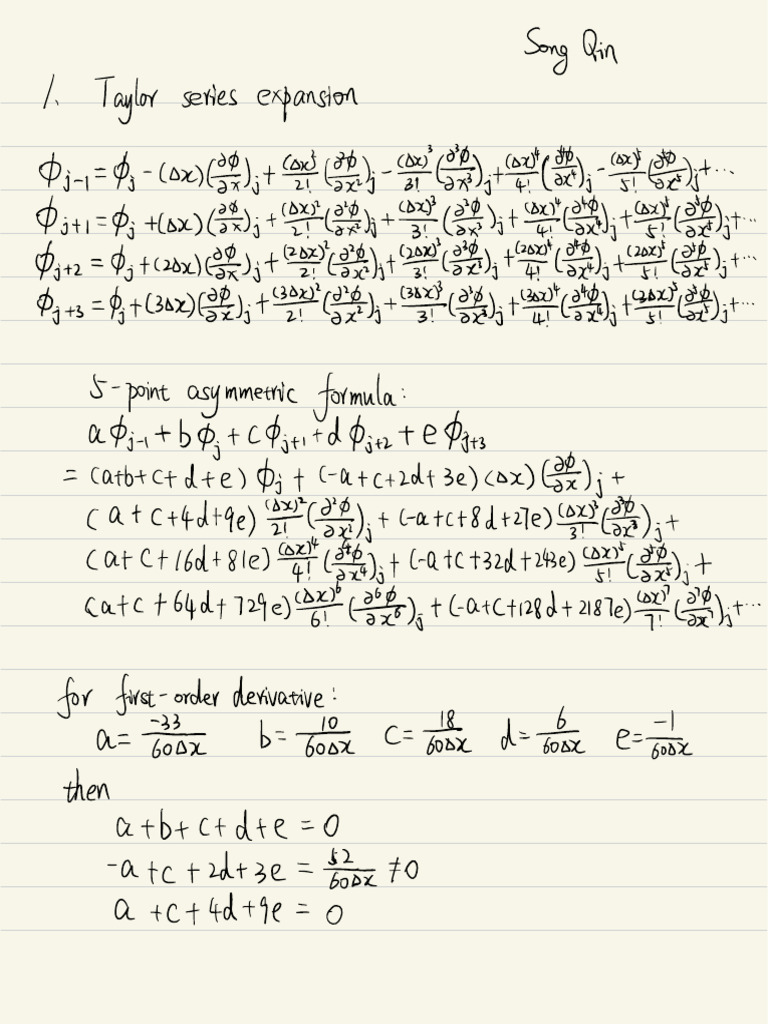 Song Qin
1. Taylor series expansion
ϕ_{j-1} = ϕ_j - (Δx)(∂ϕ/∂x)_j + (Δx)²/2! (∂²ϕ/∂x²)_j - (Δx)³/3! (∂³ϕ/∂x³)_j + (Δx)⁴/4! (∂⁴ϕ/∂x⁴)_j - (Δx)⁵/5! (∂⁵ϕ/∂x⁵)_j + ...
ϕ_{j+1} = ϕ_j + (Δx)(∂ϕ/∂x)_j + (Δx)²/2! (∂²ϕ/∂x²)_j + (Δx)³/3! (∂³ϕ/∂x³)_j + (Δx)⁴/4! (∂⁴ϕ/∂x⁴)_j + (Δx)⁵/5! (∂⁵ϕ/∂x⁵)_j + ...
ϕ_{j+2} = ϕ_j + (2Δx)(∂ϕ/∂x)_j + (2Δx)²/2! (∂²ϕ/∂x²)_j + (2Δx)³/3! (∂³ϕ/∂x³)_j + (2Δx)⁴/4! (∂⁴ϕ/∂x⁴)_j + (2Δx)⁵/5! (∂⁵ϕ/∂x⁵)_j + ...
ϕ_{j+3} = ϕ_j + (3Δx)(∂ϕ/∂x)_j + (3Δx)²/2! (∂²ϕ/∂x²)_j + (3Δx)³/3! (∂³ϕ/∂x³)_j + (3Δx)⁴/4! (∂⁴ϕ/∂x⁴)_j + (3Δx)⁵/5! (∂⁵ϕ/∂x⁵)_j + ...
5-point asymmetric formula:
aϕ_{j-1} + bϕ_j + cϕ_{j+1} + dϕ_{j+2} + eϕ_{j+3}
= (a+b+c+d+e) ϕ_j + (-a+c+2d+3e) (Δx) (∂ϕ/∂x)_j +
(a+c+4d+9e) (Δx)²/2! (∂²ϕ/∂x²)_j + (-a+c+8d+27e) (Δx)³/3! (∂³ϕ/∂x³)_j +
(a+c+16d+81e) (Δx)⁴/4! (∂⁴ϕ/∂x⁴)_j + (-a+c+32d+243e) (Δx)⁵/5! (∂⁵ϕ/∂x⁵)_j +
(a+c+64d+729e) (Δx)⁶/6! (∂⁶ϕ/∂x⁶)_j + (-a+c+128d+2187e) (Δx)⁷/7! (∂⁷ϕ/∂x⁷)_j + ...
for first-order derivative:
a = -33/60Δx b = 10/60Δx c = 18/60Δx d = 6/60Δx e = -1/60Δx
then
a+b+c+d+e = 0
-a+c+2d+3e = 52/60Δx ≠ 0
a +c+4d+9e = 0